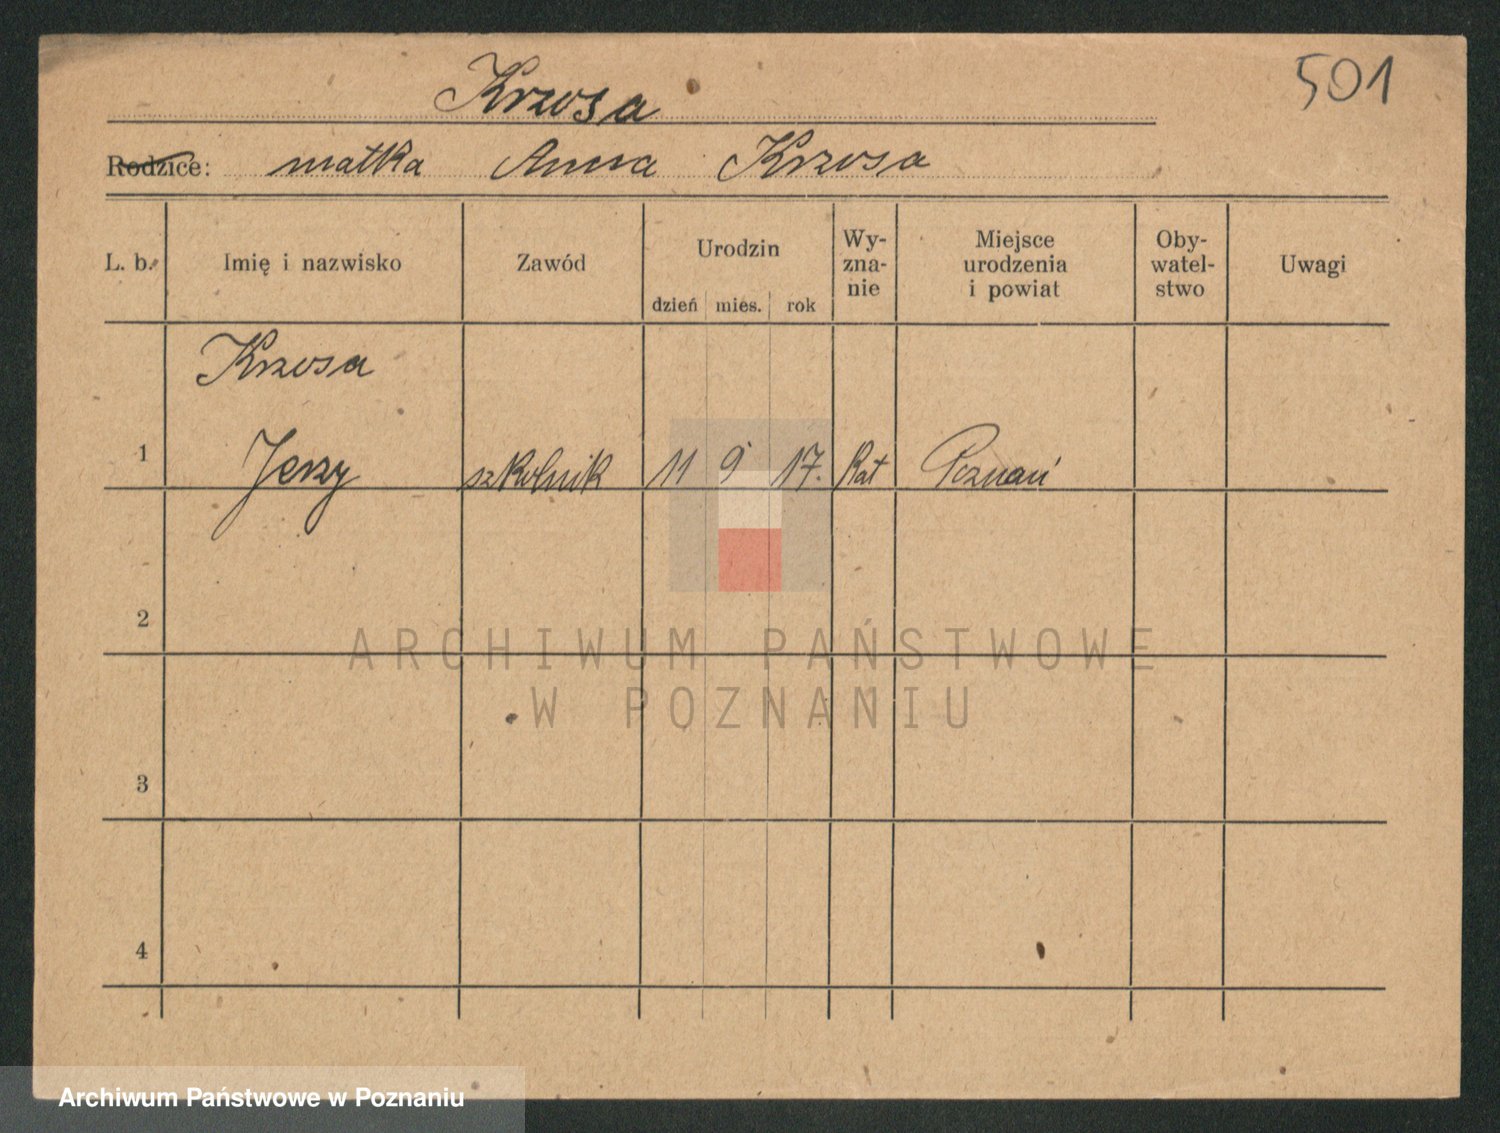 501
Krzosa
Rodzice: matka Anna Krzosa
L. b. Imię i nazwisko Zawód Urodzin dzień mies. rok Wy-zna-nie Miejsce urodzenia i powiat Oby-watel-stwo Uwagi
Krzosa
1 Jerzy szkolnik 11 9 17. kat Poznań
2
ARCHIWUM PAŃSTWOWE
W POZNANIU
3
4
Archiwum Państwowe w Poznaniu